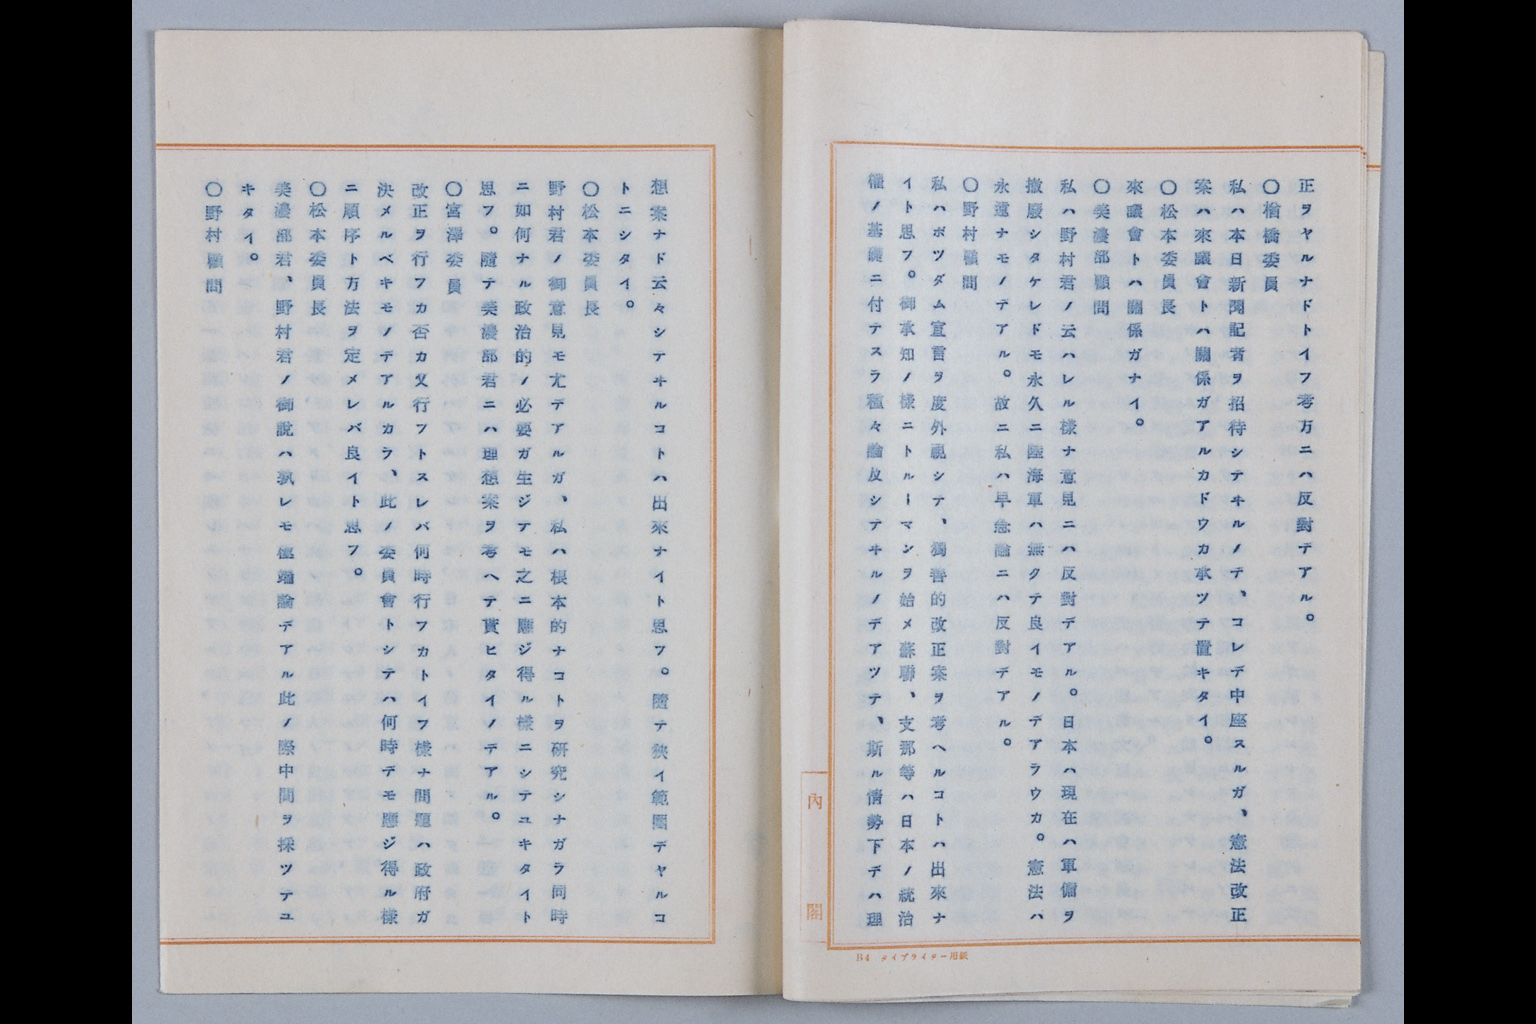 正ヲヤルナドトイフ考方ニハ反對デアル。
〇楢橋委員
私ハ本日新聞記者ヲ招待シテヰルノデ、コレデ中座スルガ、憲法改正
案ハ來議會トハ關係ガアルカドウカ承ツテ置キタイ。
〇松本委員長
來議會トハ關係ガナイ。
〇美濃部顧問
私ハ野村君ノ云ハレル樣ナ意見ニハ反對デアル。日本ハ現在ハ軍備ヲ
撤廢シタケレドモ永久ニ陸海軍ハ無クテ良イモノデアラウカ。憲法ハ
永遠ナモノデアル。故ニ私ハ早急論ニハ反對デアル。
〇野村顧問
私ハポツダム宣言ヲ度外視シテ、獨善的改正案ヲ考ヘルコトハ出來ナ
イト思フ。御承知ノ樣ニトルーマンヲ始メ蘇聯、支那等ハ日本ノ統治
權ノ基礎ニ付テスラ種々論及シテヰルノデアツテ、斯ル情勢下デハ理
內閣
B4 タイプライター用紙
想案ナド云々シテヰルコトハ出來ナイト思フ。隨テ狹イ範圍デヤルコ
トニシタイ。
〇松本委員長
野村君ノ御意見モ尤デアルガ、私ハ根本的ナコトヲ研究シナガラ同時
ニ如何ナル政治的ノ必要ガ生ジテモ之ニ應ジ得ル樣ニシテユキタイト
思フ。隨テ美濃部君ニハ理想案ヲ考ヘテ貰ヒタイノデアル。
〇宮澤委員
改正ヲ行フカ否カ又行フトスレバ何時行フカトイフ樣ナ問題ハ政府ガ
決メルベキモノデアルカラ、此ノ委員會トシテハ何時デモ應ジ得ル樣
ニ順序ト方法ヲ定メレバ良イト思フ。
〇松本委員長
美濃部君、野村君ノ御說ハ孰レモ極端論デアル此ノ際中間ヲ採ツテユ
キタイ。
〇野村顧問